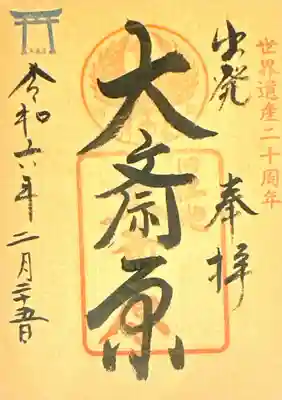 世界遺産二十周年
出発
奉拝
大斎原
令和六年二月二十五日